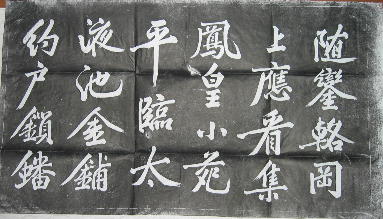 随鑾輅岡
上應看集
鳳皇小苑
平臨太
液池金鋪
約户鎖蟠